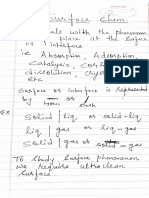 Surface Chem
deals with the phenomenon
place at the surface
or interface
ie Absorption, Adsorption
Catalysis, Corr
dissolution, crys
etc
Surface or interface is represented
by — or
Solid | liq or solid-liq
liq | gas or liq-gas
Solid | gas or
To study surface phenomenon
we require ultraclean
surface